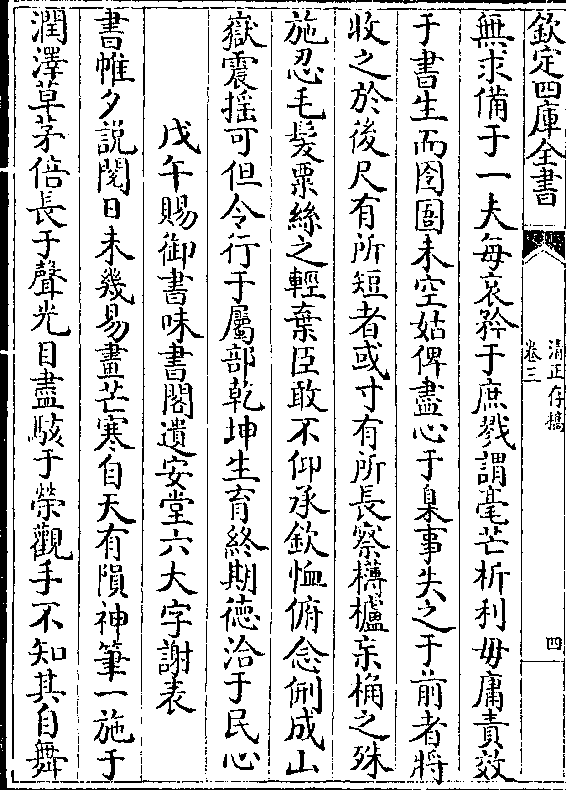 欽定四庫全書
清正存稿
卷三
四
無求備于一夫每哀矜于庶戮謂毫芒析利毋庸責效
于書生而囹圄未空姑俾盡心于臬事失之于前者將
收之於後尺有所短者或寸有所長察欂櫨亲桷之殊
施忍毛髮粟絲之輕棄臣敢不仰承欽恤俯念侀成山
嶽震揺可但令行于屬部乾坤生育終期徳洽于民心
戊午賜御書味書閣遺安堂六大字謝表
書帷夕説閱日未幾易畫芒寒自天有隕神筆一施于
潤澤草茅倍長于聲光目盡駭于榮觀手不知其自舞